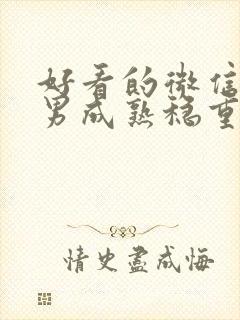 好看的微信
男成熟稳重
情史尽成悔